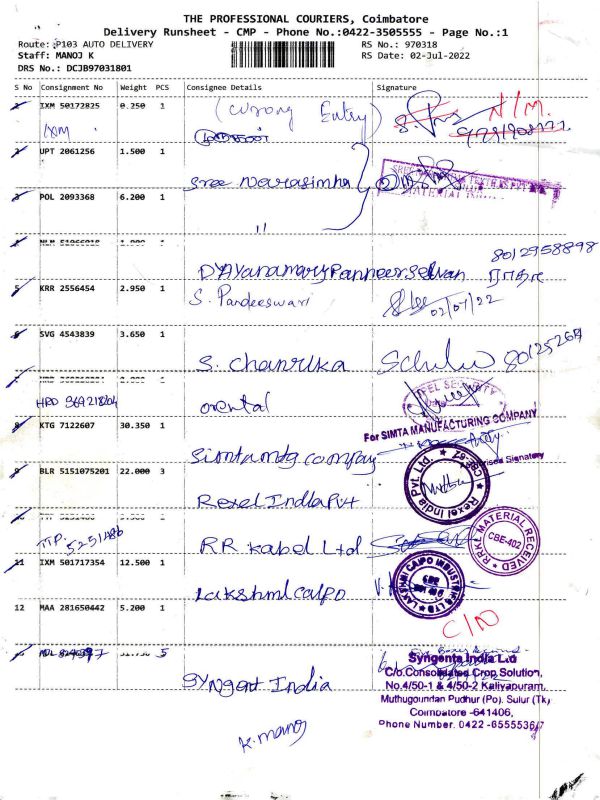 THE PROFESSIONAL COURIERS, Coimbatore
Delivery Runsheet - CMP - Phone No.:0422-3505555 - Page No.:1
Route: P103 AUTO DELIVERY
RS No.: 970318
Staff: MANOJ K
RS Date: 02-Jul-2022
DRS No.: DCJB97031801
S No Consignment No Weight PCS Consignee Details Signature
IXM 50172825 0.250 1 (Wrong Entry) N/M.
IXM
2 UPT 2061256 1.500 1
Sree Narasimha
3 POL 2093368 6.200 1
"
DAYanamary Panneerselvan 8012958898
5 KRR 2556454 2.950 1 S. Pandeeswari
02/07/22
6 SVG 4543839 3.650 1
S. Chanrika
HRD 369218204 orental
REEL SECURITY
For SIMTA MANUFACTURING COMPANY
8 KTG 7122607 30.350 1
Simta mfg company
Authorised Signatory
9 BLR 5151075201 22.000 3
Rexel India Pvt
Rexel India Pvt. Ltd. CBE-87
TTP. 5251486
RR Kabel Ltd
RRKL MATERIAL RECEIVED
CBE-402
11 IXM 501717354 12.500 1
Lakshmi Caipo
LAKSHMI CAIPO INDUSTRIES LTD
12 MAA 281650442 5.200 1
C/N
5
Syngent India
Syngenta India Ltd
C/o.Consolidated Crop Solution,
No.4/50-1 & 4/50-2 Kaliyapuram,
Muthugoundan Pudhur (Po). Sulur (Tk)
Coimbatore -641406,
Phone Number. 0422 -6555536/7
K. Manoj